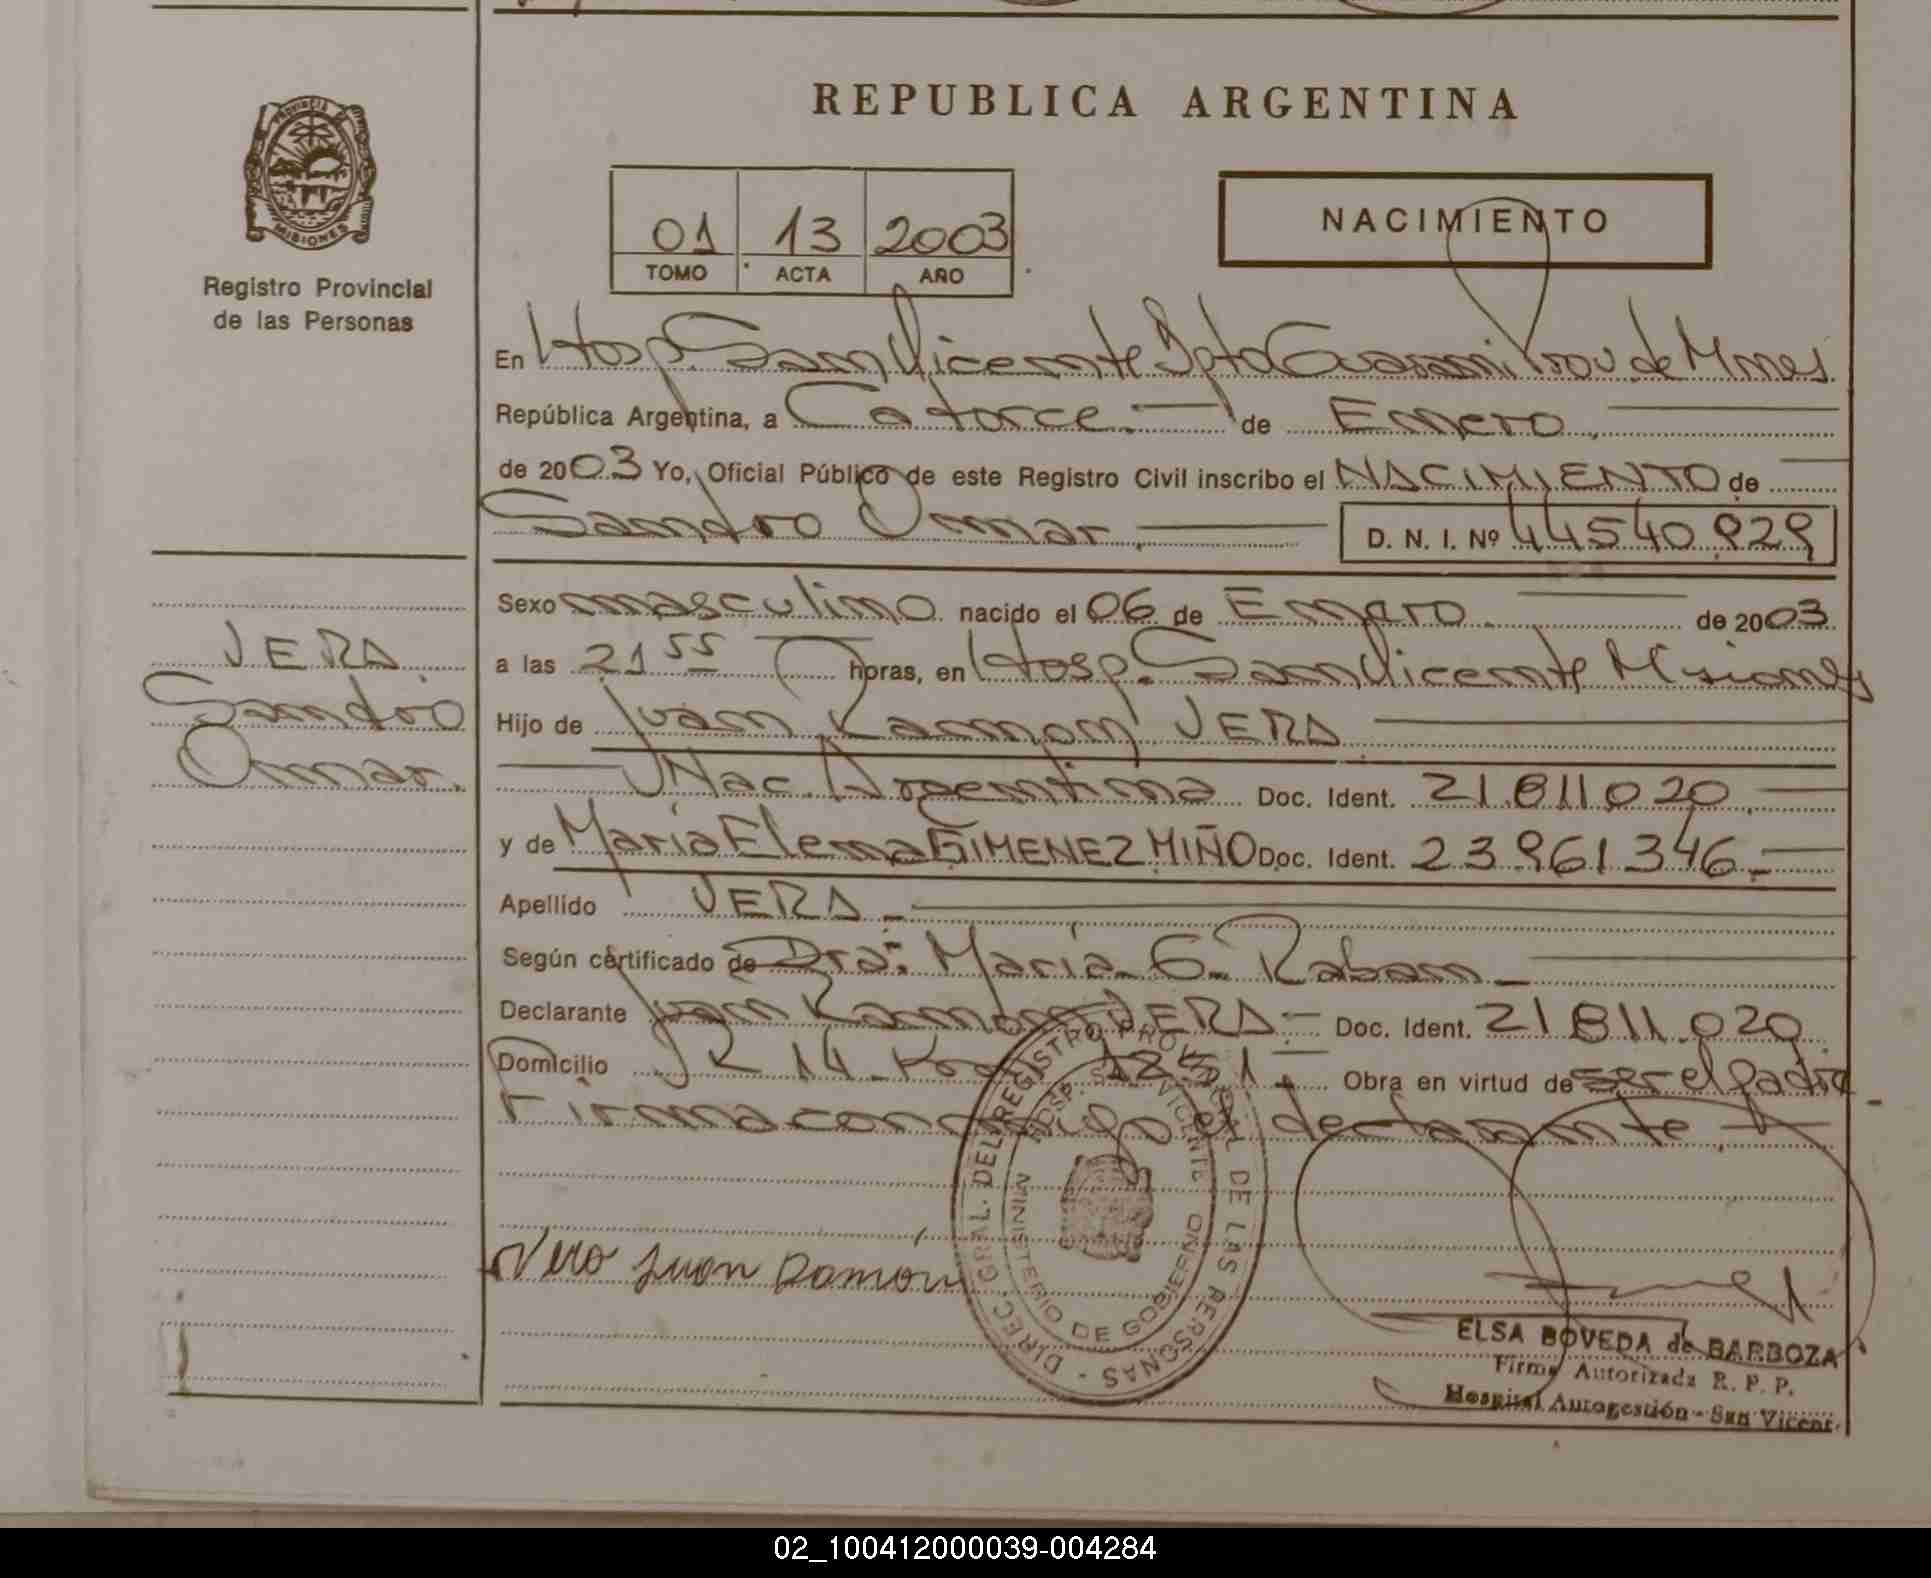 REPUBLICA ARGENTINA
PROVINCIA DE
MISIONES
Registro Provincial
de las Personas
01 13 2003
TOMO ACTA AÑO
NACIMIENTO
En Hosp. San Vicente Dpto Guarani Prov de Mnes
República Argentina, a Catorce.— de Enero.
de 2003 Yo, Oficial Público de este Registro Civil inscribo el NACIMIENTO de
Sandro Omar. D. N. I. Nº 44540.929
Sexo masculino nacido el 06 de Enero de 2003
a las 21 55 horas, en Hosp. San Vicente Misiones
VERA
Sandro
Omar.
Hijo de Juan Ramon VERA
Nac. Argentina Doc. Ident. 21.811.020.
y de María Elena GIMENEZ MIÑO Doc. Ident. 23.961.346.—
Apellido VERA —
Según certificado de Dra: María G. Raban —
Declarante Juan Ramon VERA — Doc. Ident. 21.811.020
Domicilio R 14 1251. Obra en virtud de ser el padre
Firma conmigo el declarante.
Vera Juan Ramon
DIREC. GRAL. DEL REGISTRO PROVINCIAL DE LAS PERSONAS -
HOSP. SAN VICENTE
MINISTERIO DE GOBIERNO
ELSA BOVEDA de BARBOZA
Firma Autorizada R. P. P.
Hospital Autogestión - San Vicent.
02_100412000039-004284